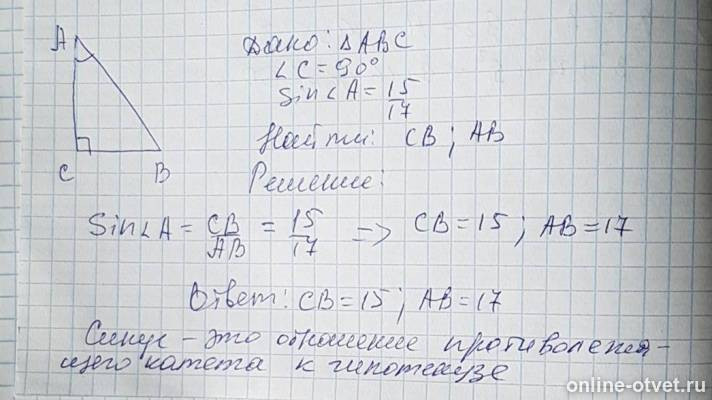 A
C
B
Дано: ΔABC
∠C = 90°
Sin∠A = 15/17
Найти: CB; AB
Решение:
Sin∠A = CB/AB = 15/17 => CB = 15; AB = 17
Ответ: CB = 15; AB = 17
Синус - это отношение противолежа-
щего катета к гипотенузе
online-otvet.ru